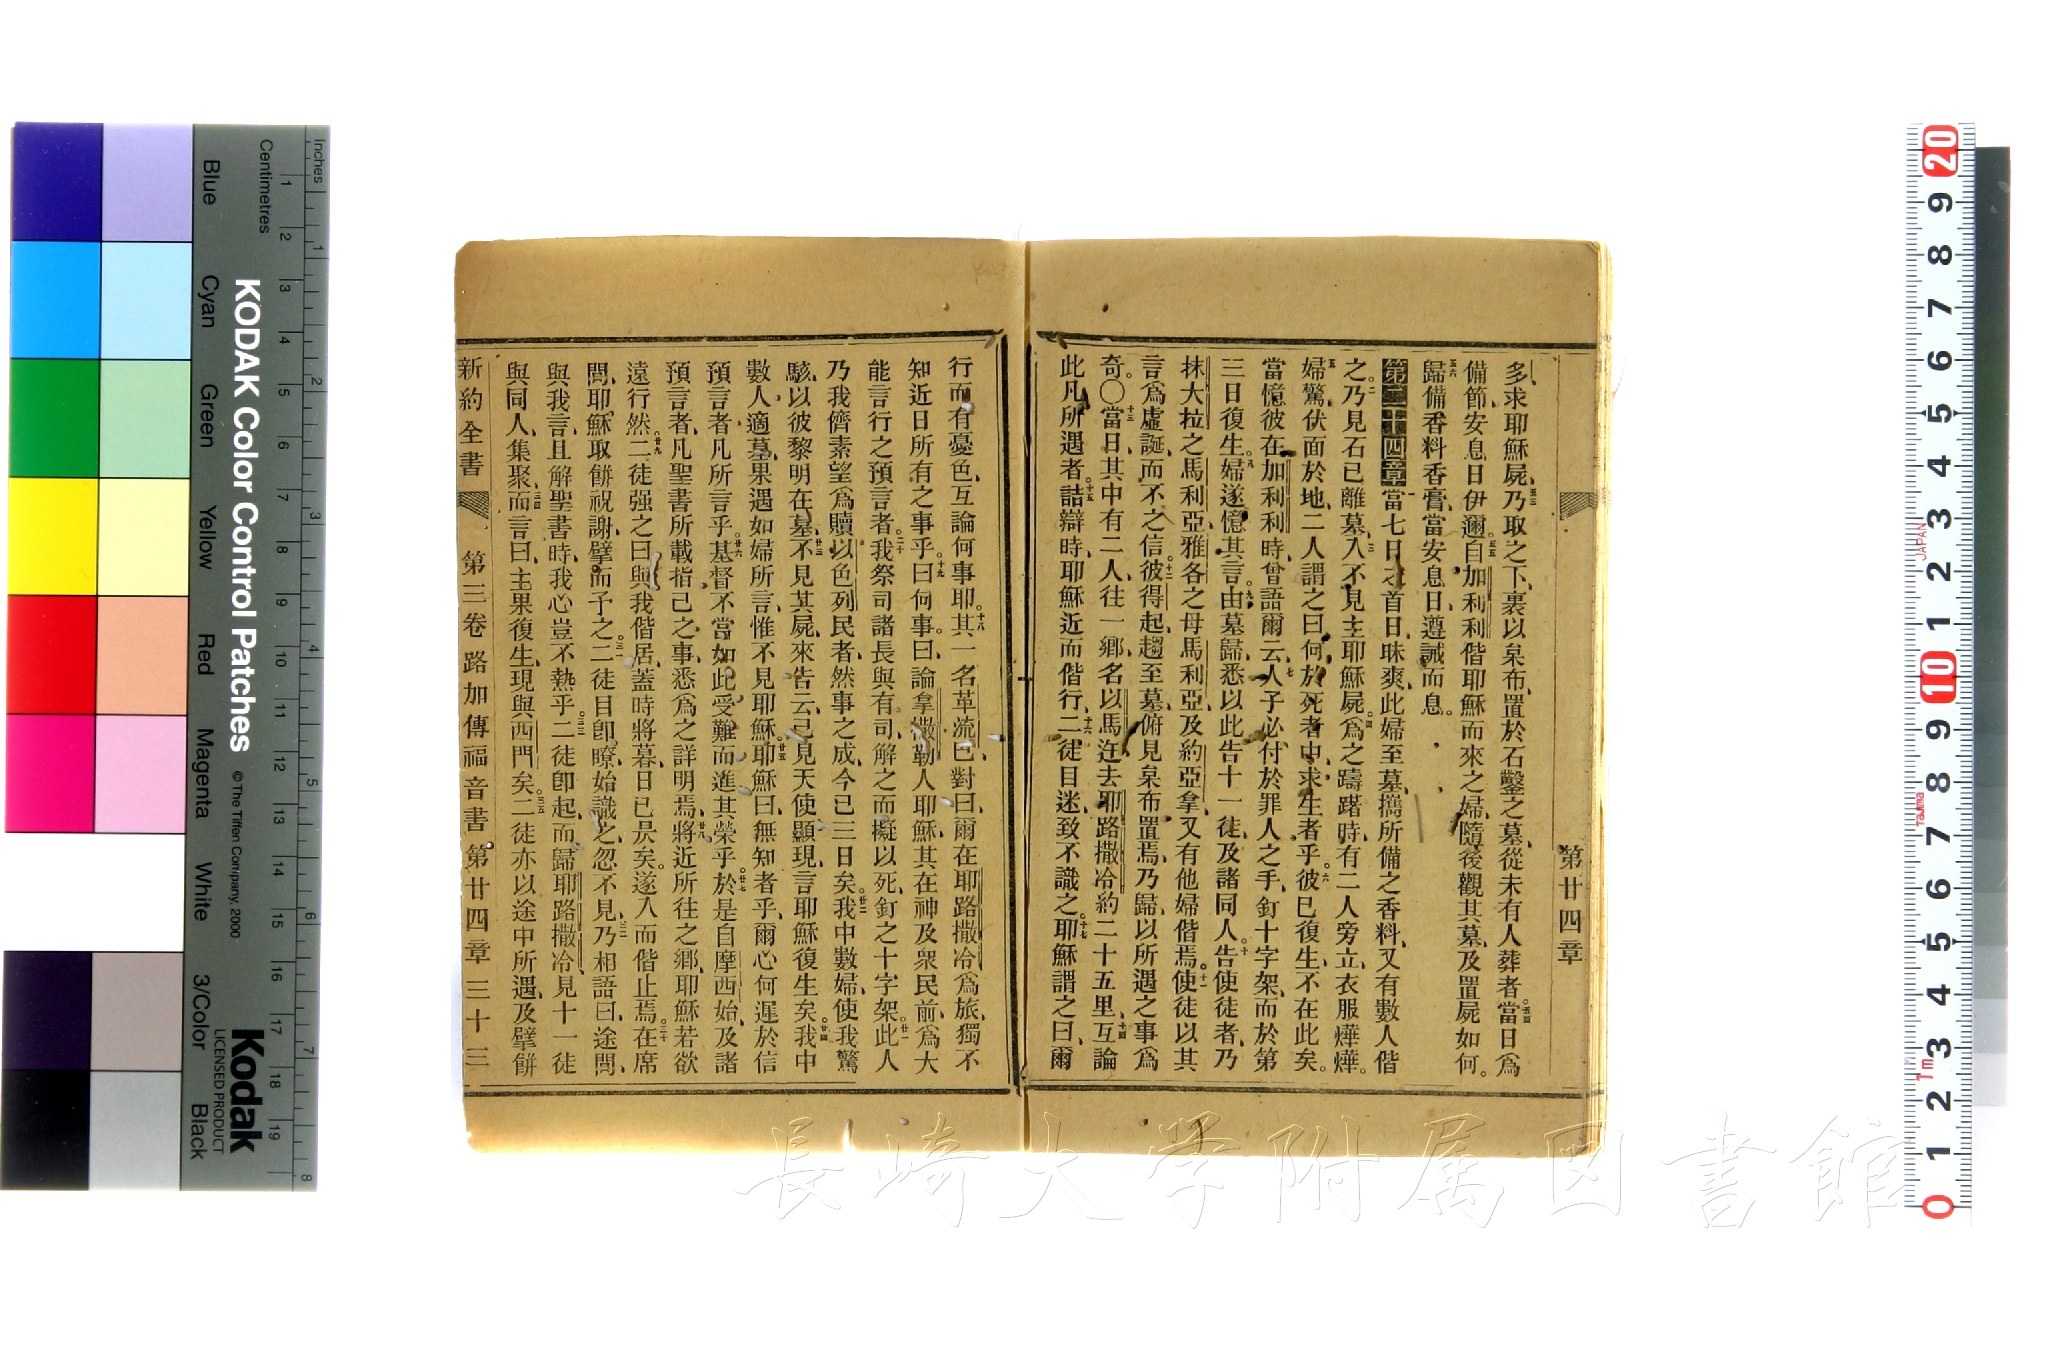 第廿四章
多求耶穌屍、五三乃取之下、裹以枲布、置於石鑿之墓、從未有人葬者、五四當日爲
備節、安息日伊邇、五五自加利利偕耶穌而來之婦、隨後觀其墓、及置屍如何。
五六歸備香料香膏、當安息日、遵誡而息。
第二十四章一當七日之首日、昧爽、此婦至墓、攜所備之香料、又有數人偕
之。二乃見石已離墓、三入不見主耶穌屍。四爲之躊躇時、有二人旁立、衣服燁燁。
五婦驚伏面於地、二人謂之曰、何於死者中、求生者乎。六彼已復生、不在此矣。
當憶彼在加利利時、曾語爾云、七人子必付於罪人之手、釘十字架、而於第
三日復生。八婦遂憶其言、九由墓歸、悉以此告十一徒、及諸同人。十告使徒者、乃
抹大拉之馬利亞、雅各之母馬利亞、及約亞拿、又有他婦偕焉。十一使徒以其
言爲虛誕、而不之信。十二彼得起、趨至墓、俯見枲布置焉、乃歸、以所遇之事爲
奇。〇十三當日、其中有二人、往一鄉、名以馬迕、去耶路撒冷約二十五里、十四互論
此凡所遇者。十五詰辯時、耶穌近而偕行、十六二徒目迷、致不識之。十七耶穌謂之曰、爾
行而有憂色、互論何事耶。十八其一名革流巴、對曰、爾在耶路撒冷爲旅、獨不
知近日所有之事乎。十九曰何事。曰、論拿撒勒人耶穌、其在神及衆民前、爲大
能言行之預言者。二十我祭司諸長與有司、解之而擬以死、釘之十字架。廿一此人
乃我儕素望爲贖以色列民者、然事之成、今已三日矣。廿二我中數婦、使我驚
駭、以彼黎明在墓、廿三不見其屍、來告云、已見天使顯現、言耶穌復生矣。廿四我中
數人適墓、果遇如婦所言、惟不見耶穌。廿五耶穌曰、無知者乎、爾心何遲於信
預言者凡所言乎。廿六基督不當如此受難、而進其榮乎。廿七於是自摩西始、及諸
預言者、凡聖書所載指己之事、悉爲之詳明焉。廿八將近所往之鄉、耶穌若欲
遠行然。廿九二徒强之曰、與我偕居、蓋時將暮、日已昃矣。遂入而偕止焉。三十在席
間、耶穌取餅祝謝、擘而予之。三一二徒目卽瞭、始識之、忽不見。三二乃相語曰、途間
與我言、且解聖書時、我心豈不熱乎。三三二徒卽起、而歸耶路撒冷、見十一徒
與同人集聚、三四而言曰、主果復生、現與西門矣。三五二徒亦以途中所遇、及擘餅
新約全書 第三卷 路加傳福音書 第廿四章 三十三
KODAK Color Control Patches
© The Tiffen Company, 2000
Kodak
LICENSED PRODUCT
Inches
Centimetres
Blue
Cyan
Green
Yellow
Red
Magenta
White
3/Color
Black
JAPAN
Tajima
1m
長崎大学附属図書館